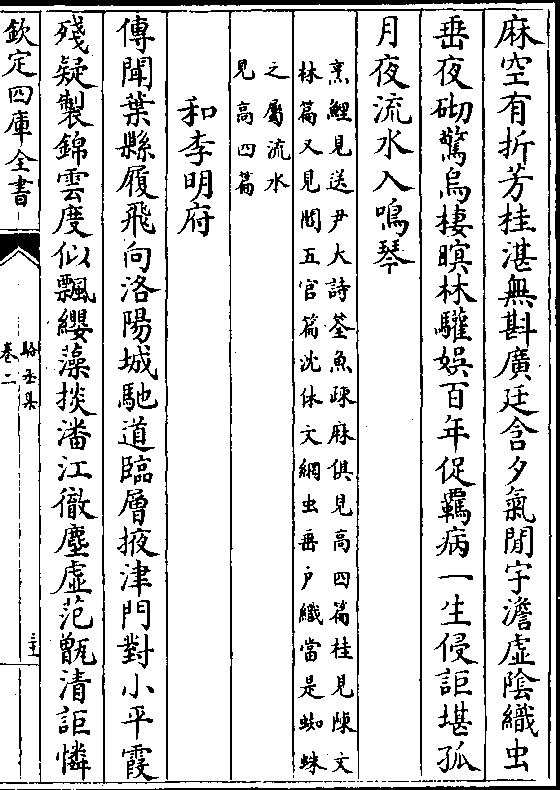 麻空有折芳桂湛無斟廣廷含夕氣閒宇澹虛陰織虫
垂夜砌驚烏棲暝林驩娛百年促羈病一生侵詎堪孤
月夜流水入鳴琴
烹鯉見送尹大詩荃魚疎麻俱見高四篇桂見陳文
林篇又見閻五官篇沈休文網虫垂戶織當是蜘蛛
之屬流水
見高四篇
和李明府
傳聞葉縣履飛向洛陽城馳道臨層掖津門對小平霞
殘疑製錦雲度似飄纓藻掞潘江徹塵虛范甑清詎憐
欽定四庫全書
駱丞集
卷二